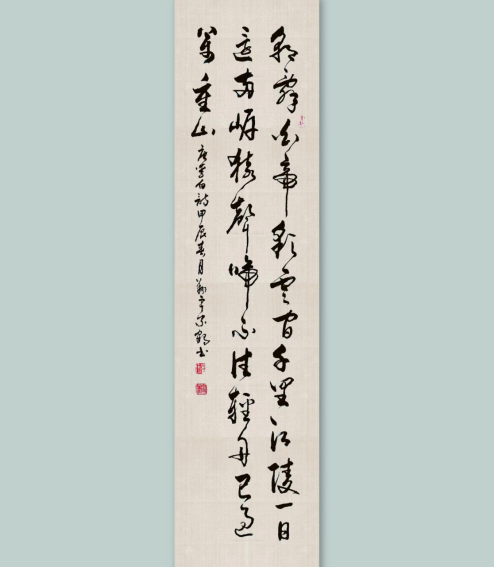 朝辞白帝彩云间千里江陵一日
還两岸猿聲啼不住輕舟已過
萬重山
唐李白詩甲辰春月